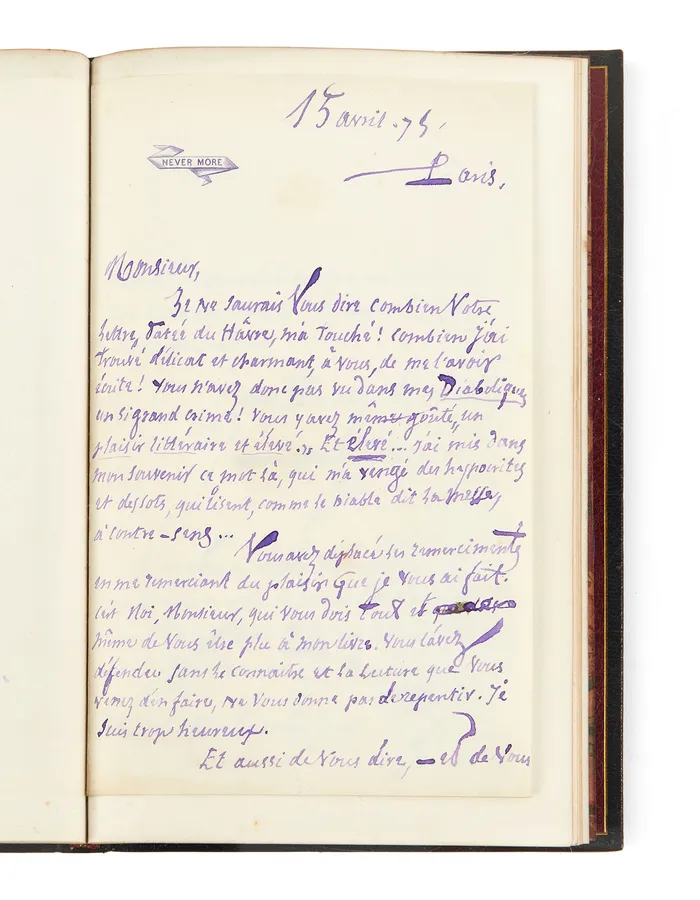 15 avril. 75.
NEVER MORE
Paris.
Monsieur,
Je ne saurais Vous dire combien Votre
Lettre, Datée du Hâvre, m'a Touché! combien j'ai
Trouvé délicat et charmant, à vous, de me l'avoir
écrite! Vous n'avez donc pas vu dans mes Diaboliques
un si grand crime! Vous y avez même goûté, un
plaisir littéraire et élevé. » Et élevé... j'ai mis dans
mon souvenir ce mot là, qui m'a vengé des hypocrites
et des sots, qui lisent, comme le Diable dit la Messe,
à contre-sens...
Vous avez déplacé les remerciments
en me remerciant du plaisir que je vous ai fait.
C'est Moi, Monsieur, qui vous dois Tout et
même de Vous être plu à mon livre. Vous l'avez
défendu sans le connaître et la Lecture que Vous
venez d'en faire, ne Vous donne pas de repentir. Je
suis trop heureux.
Et aussi de Vous dire, – et de Vous